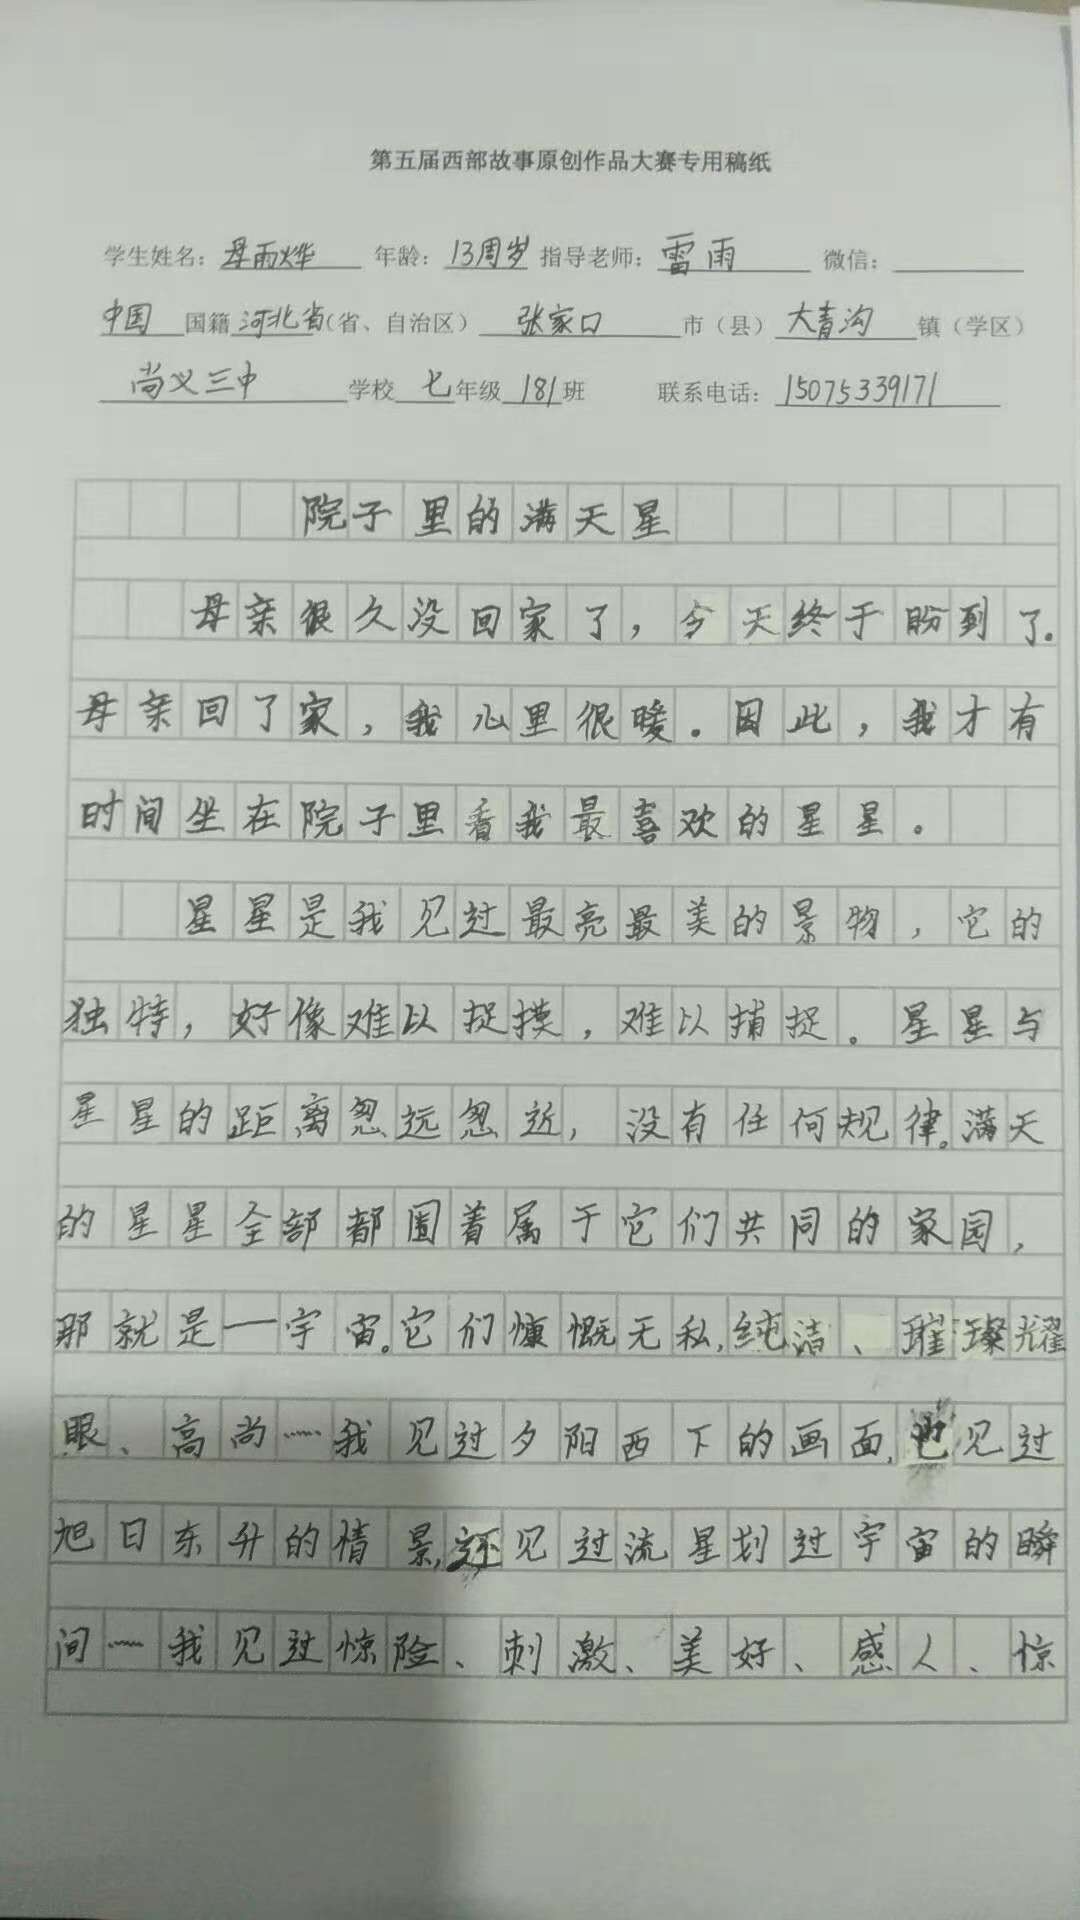 第五届西部故事原创作品大赛专用稿纸
学生姓名：母雨烨 年龄：13周岁 指导老师：雷雨 微信：
中国 国籍 河北省（省、自治区） 张家口 市（县） 大青沟 镇（学区）
尚义三中 学校 七年级 181班 联系电话：15075339171
院子里的满天星
母亲很久没回家了，今天终于盼到了。
母亲回了家，我心里很暖。因此，我才有
时间坐在院子里看我最喜欢的星星。
星星是我见过最亮最美的景物，它的
独特，好像难以捉摸，难以捕捉。星星与
星星的距离忽远忽近，没有任何规律。满天
的星星全部都围着属于它们共同的家园，
那就是——宇宙。它们慷慨无私，纯洁、璀璨耀
眼、高尚……我见过夕阳西下的画面，也见过
旭日东升的情景，还见过流星划过宇宙的瞬
间……我见过惊险、刺激、美好、感人、惊